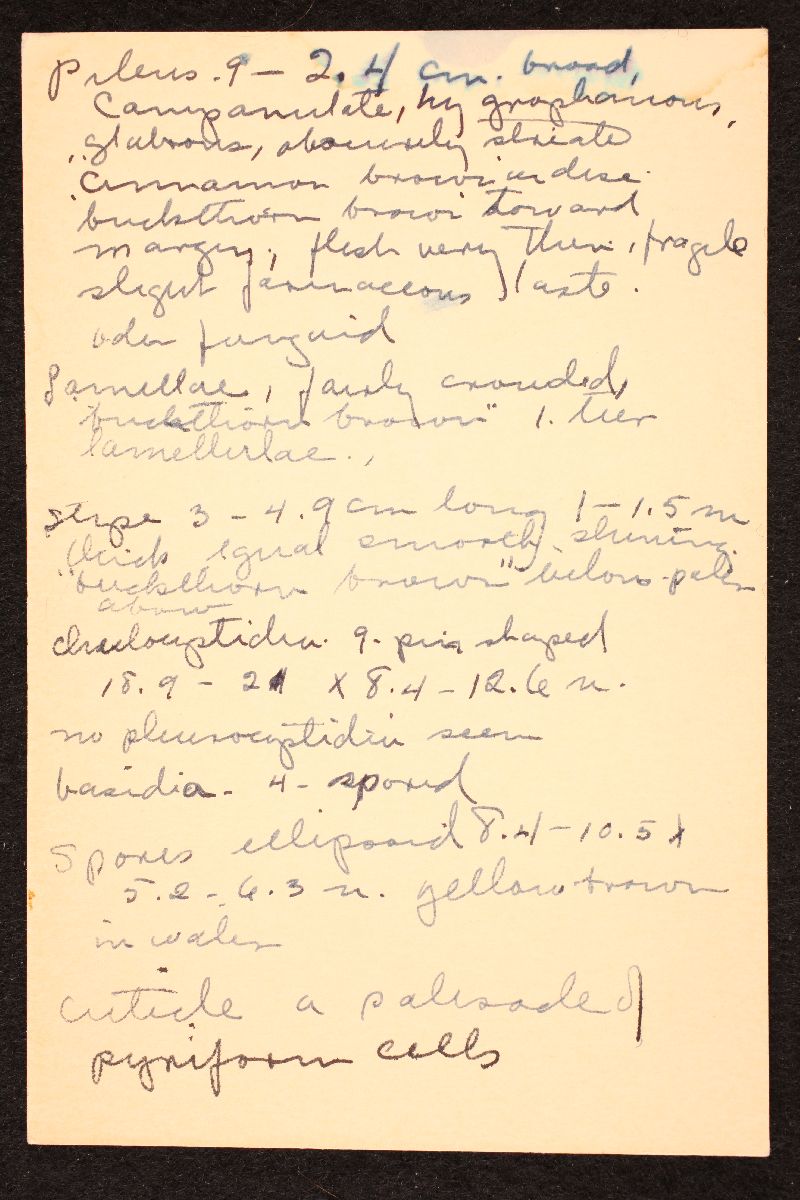 Pileus .9 – 2.4 cm. broad,
Campanulate, hygrophanous,
glabrous, obscurely striate
"cinnamon brown" in disc.
buckthorn brown toward
margin, flesh very thin, fragile
slight farinaceous taste.
odor fungoid
Lamellae, fairly crowded,
"buckthorn brown" 1. tier
lamellulae.,
Stipe 3 – 4.9 cm long 1 – 1.5 m
thick equal smooth, shining.
"buckthorn brown" below paler
above
cheilocystidia. 9-pin shaped
18.9 – 21 x 8.4 – 12.6 u.
no pleurocystidia seen
basidia - 4 - spored
Spores ellipsoid 8.4 – 10.5 x
5.2 - 6.3 u. yellow-brown
in water
cuticle a palisade of
pyriform cells